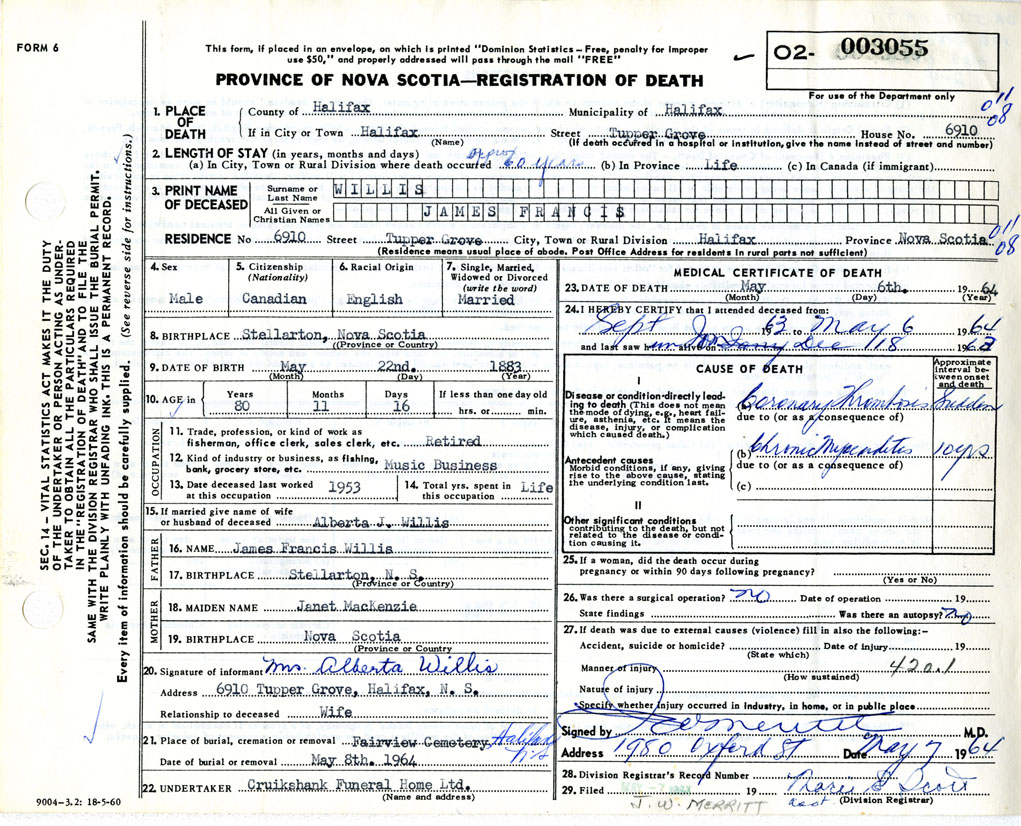 FORM 6
This form, if placed in an envelope, on which is printed "Dominion Statistics – Free, penalty for improper
use $50," and properly addressed will pass through the mail "FREE"
O2- 003055
PROVINCE OF NOVA SCOTIA—REGISTRATION OF DEATH
For use of the Department only
011
08
1. PLACE OF DEATH
County of Halifax Municipality of Halifax
If in City or Town Halifax Street Tupper Grove House No. 6910
(Name) (If death occurred in a hospital or institution, give the name instead of street and number)
2. LENGTH OF STAY (in years, months and days)
(a) In City, Town or Rural Division where death occurred approx 60 years (b) In Province Life (c) In Canada (if immigrant)
3. PRINT NAME OF DECEASED
Surname or Last Name WILLIS
All Given or Christian Names JAMES FRANCIS
011
08
RESIDENCE No 6910 Street Tupper Grove City, Town or Rural Division Halifax Province Nova Scotia
(Residence means usual place of abode. Post Office Address for residents in rural parts not sufficient)
4. Sex
Male
5. Citizenship (Nationality)
Canadian
6. Racial Origin
English
7. Single, Married, Widowed or Divorced (write the word)
Married
8. BIRTHPLACE Stellarton, Nova Scotia
(Province or Country)
9. DATE OF BIRTH May 22nd. 1883
(Month) (Day) (Year)
10. AGE in
Years Months Days If less than one day old
80 11 16 hrs. or min.
OCCUPATION
11. Trade, profession, or kind of work as
fisherman, office clerk, sales clerk, etc. Retired
12. Kind of industry or business, as fishing,
bank, grocery store, etc. Music Business
13. Date deceased last worked at this occupation 1953
14. Total yrs. spent in this occupation Life
15. If married give name of wife
or husband of deceased Alberta J. Willis
FATHER
16. NAME James Francis Willis
17. BIRTHPLACE Stellarton, N. S.
(Province or Country)
MOTHER
18. MAIDEN NAME Janet MacKenzie
19. BIRTHPLACE Nova Scotia
(Province or Country)
20. Signature of informant Mrs. Alberta Willis
Address 6910 Tupper Grove, Halifax, N. S.
Relationship to deceased Wife
21. Place of burial, cremation or removal Fairview Cemetery, Halifax N.S
Date of burial or removal May 8th. 1964
22. UNDERTAKER Cruikshank Funeral Home Ltd.
(Name and address)
9004-3.2: 18-5-60
MEDICAL CERTIFICATE OF DEATH
23. DATE OF DEATH May 6th. 1964
(Month) (Day) (Year)
24. I HEREBY CERTIFY that I attended deceased from:
Sept 1962 to May 6 1964
and last saw alive on Dec 1963
CAUSE OF DEATH
Approximate interval between onset and death
I
Disease or condition directly leading to death (This does not mean the mode of dying, e.g., heart failure, asthenia, etc. It means the disease, injury, or complication which caused death.)
(a) Coronary Thrombosis Sudden
due to (or as a consequence of)
Antecedent causes
Morbid conditions, if any, giving rise to the above cause, stating the underlying condition last.
(b) Chronic Myocarditis 10 yrs
due to (or as a consequence of)
(c)
II
Other significant conditions
contributing to the death, but not related to the disease or condition causing it.
25. If a woman, did the death occur during
pregnancy or within 90 days following pregnancy?
(Yes or No)
26. Was there a surgical operation? no Date of operation 19
State findings Was there an autopsy? no
27. If death was due to external causes (violence) fill in also the following:–
Accident, suicide or homicide? Date of injury 19
(State which)
Manner of injury 420.1
(How sustained)
Nature of injury
Specify whether injury occurred in industry, in home, or in public place
Signed by M.D.
Address 1980 Oxford St Date May 7 1964
28. Division Registrar's Record Number
29. Filed MAY -7 1964 19 Marie S Scott
J. W. MERRITT asst. (Division Registrar)
SEC. 14 – VITAL STATISTICS ACT MAKES IT THE DUTY
OF THE UNDERTAKER OR PERSON ACTING AS UNDERTAKER
TO OBTAIN ALL THE PARTICULARS REQUIRED
IN THE "REGISTRATION OF DEATH" AND TO FILE THE
SAME WITH THE DIVISION REGISTRAR WHO SHALL ISSUE THE BURIAL PERMIT.
WRITE PLAINLY WITH UNFADING INK. THIS IS A PERMANENT RECORD.
Every item of information should be carefully supplied. (See reverse side for instructions.)